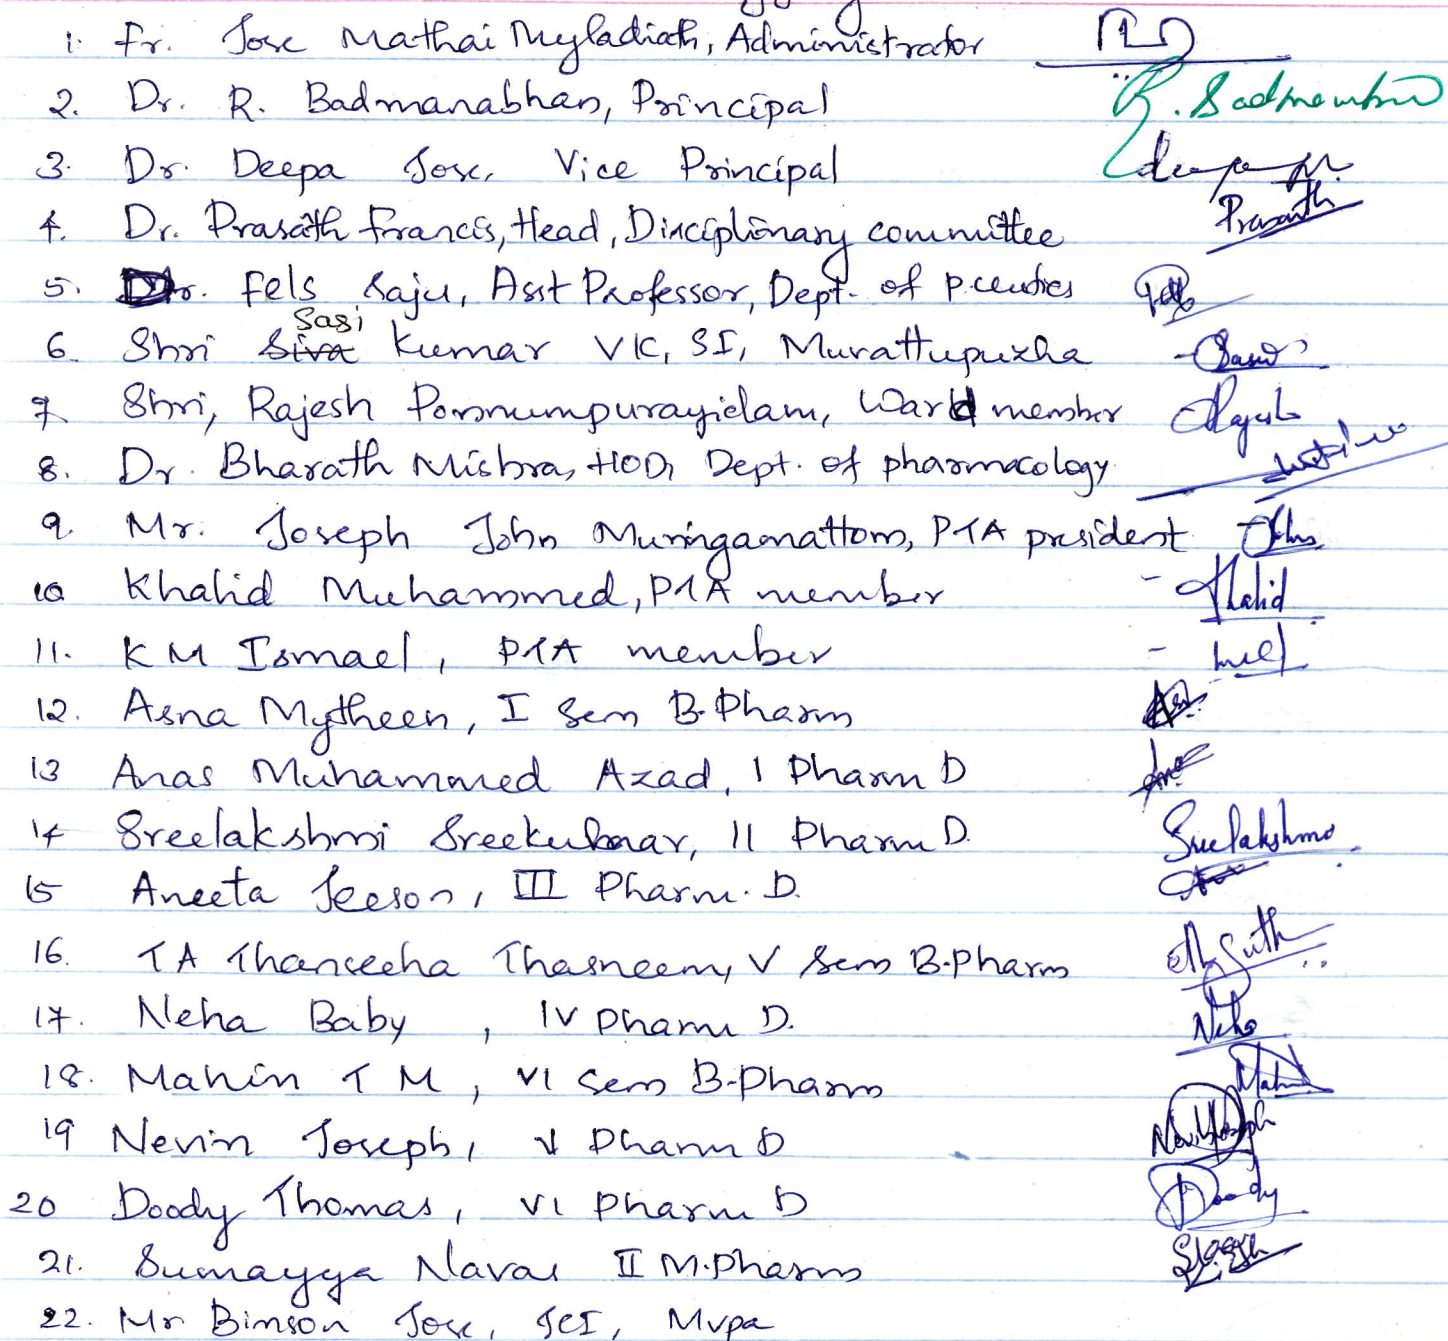 1. Fr. Jose Mathai Myladiath, Administrator
2. Dr. R. Badmanabhan, Principal R. Badmanabha
3. Dr. Deepa Jose, Vice Principal
4. Dr. Prasath Francis, Head, Disciplinary committee Prasanth
5. Dr. Fels Saju, Asst Professor, Dept. of p.ceutics
Sasi
6. Shri Siva Kumar VK, SI, Muvattupuzha
7. Shri, Rajesh Ponnumpurayidam, Ward member Rajesh
8. Dr. Bharath Mishra, HOD, Dept. of pharmacology
9. Mr. Joseph John Muringamattom, PTA president
10 Khalid Muhammed, PTA member - Khalid
11. K M Ismael, PTA member -
12. Asna Mytheen, I Sem B.Pharm
13 Anas Muhammed Azad, I Pharm D
14 Sreelakshmi Sreekumar, II Pharm D. Sreelakshmi
15 Aneeta Jeeson, III Pharm. D.
16. TA Thanseeha Thasneem, V Sem B.Pharm
17. Neha Baby, IV Pharm D. Neha
18. Mahin T M, VI Sem B-Pharm Mahin
19 Nevin Joseph, V Pharm D Nevin Joseph
20 Doody Thomas, VI Pharm D Doody
21. Sumayya Navas II M.Pharm
22. Mr Binson Jose, JCI, Mvpa